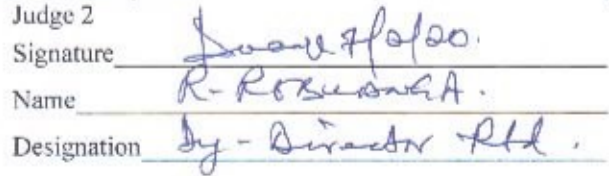 Judge 2
Signature 7/2/20.
Name R-ROBUANGA.
Designation Dy-Director Rtd.